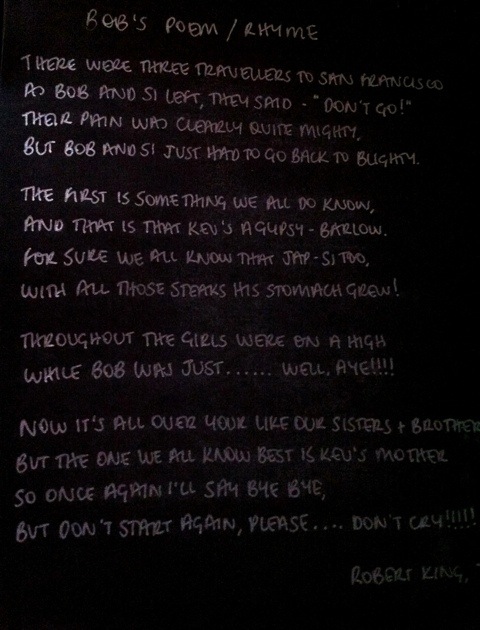 BOB'S POEM / RHYME
THERE WERE THREE TRAVELLERS TO SAN FRANCISCO
AS BOB AND SI LEFT, THEY SAID - "DON'T GO!"
THEIR PAIN WAS CLEARLY QUITE MIGHTY,
BUT BOB AND SI JUST HAD TO GO BACK TO BLIGHTY.
THE FIRST IS SOMETHING WE ALL DO KNOW,
AND THAT IS THAT KEV'S A GYPSY - BARLOW.
FOR SURE WE ALL KNOW THAT JAP-SI TOO,
WITH ALL THOSE STEAKS HIS STOMACH GREW!
THROUGHOUT THE GIRLS WERE ON A HIGH
WHILE BOB WAS JUST...... WELL, AYE!!!!
NOW IT'S ALL OVER YOUR LIKE OUR SISTERS + BROTHER
BUT THE ONE WE ALL KNOW BEST IS KEV'S MOTHER
SO ONCE AGAIN I'LL SAY BYE BYE,
BUT DON'T START AGAIN, PLEASE.... DON'T CRY!!!!!
ROBERT KING,